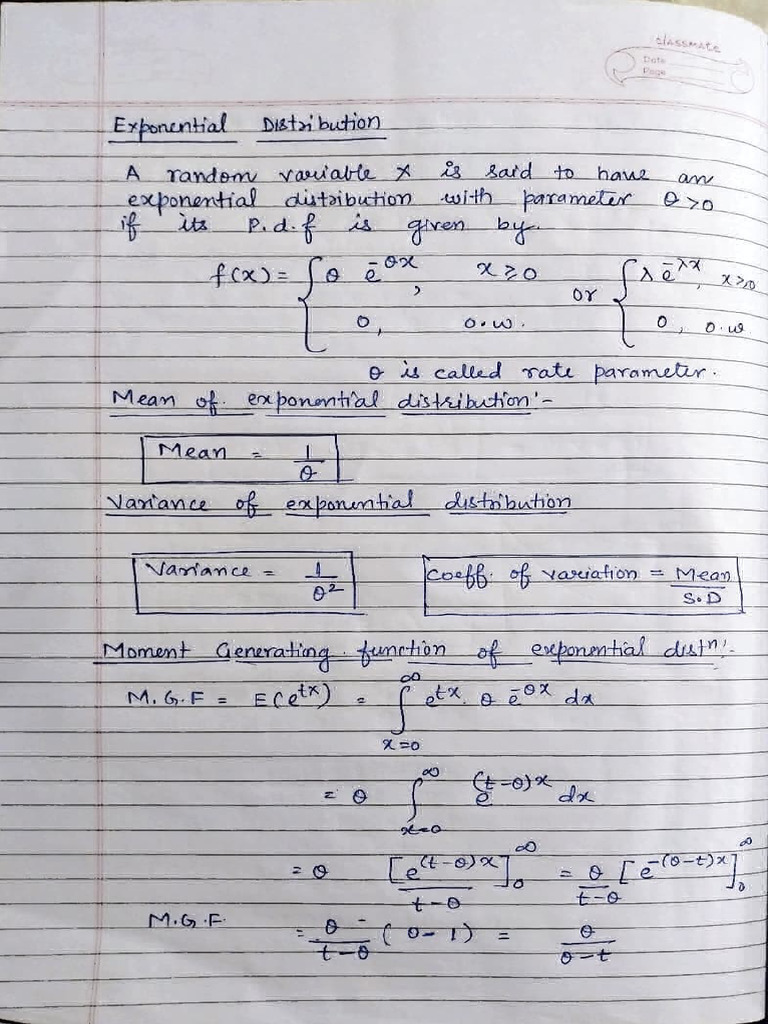 classmate
Date
Page
Exponential Distribution
A random variable X is said to have an
exponential distribution with parameter θ>0
if its P.d.f is given by.
f(x) = { θ e^-θx , x ≥ 0 or { λ e^-λx, x≥0
0, o.w. 0, o.w
θ is called rate parameter.
Mean of exponential distribution :-
Mean = 1/θ
Variance of exponential distribution
Variance = 1/θ² Coeff. of variation = Mean/S.D
Moment Generating function of exponential distn :-
M.G.F = E(e^tx) = ∫_{x=0}^∞ e^tx. θ e^-θx dx
= θ ∫_{x=0}^∞ e^(t-θ)x dx
= θ [e^(t-θ)x]_0^∞ / t-θ = θ/t-θ [e^-(θ-t)x]_0^∞
M.G.F. = θ/t-θ (0-1) = θ/θ-t